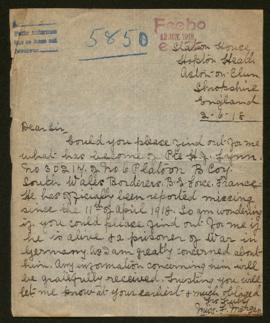 5850
Feebo
Station House
Hopton Heath
Aston-on-Clun
Shropshire
England
2-6-18
Dear Sir
Could you please find out for me
what has become of Pte H.J. Lynn.
No 30217. No 6 Platoon B Coy.
South Wales Borderers. B.E Force. France.
He has officially been reported missing
since the 11th of April 1918. So am wondering
if you could please find out for me if
he is alive & a prisoner of War in
Germany. as I am greatly concerned about
him. Any information concerning him will
be gratefully received. Trusting you will
let me know at your earliest & much obliged
Yrs
Miss. F. Morgan